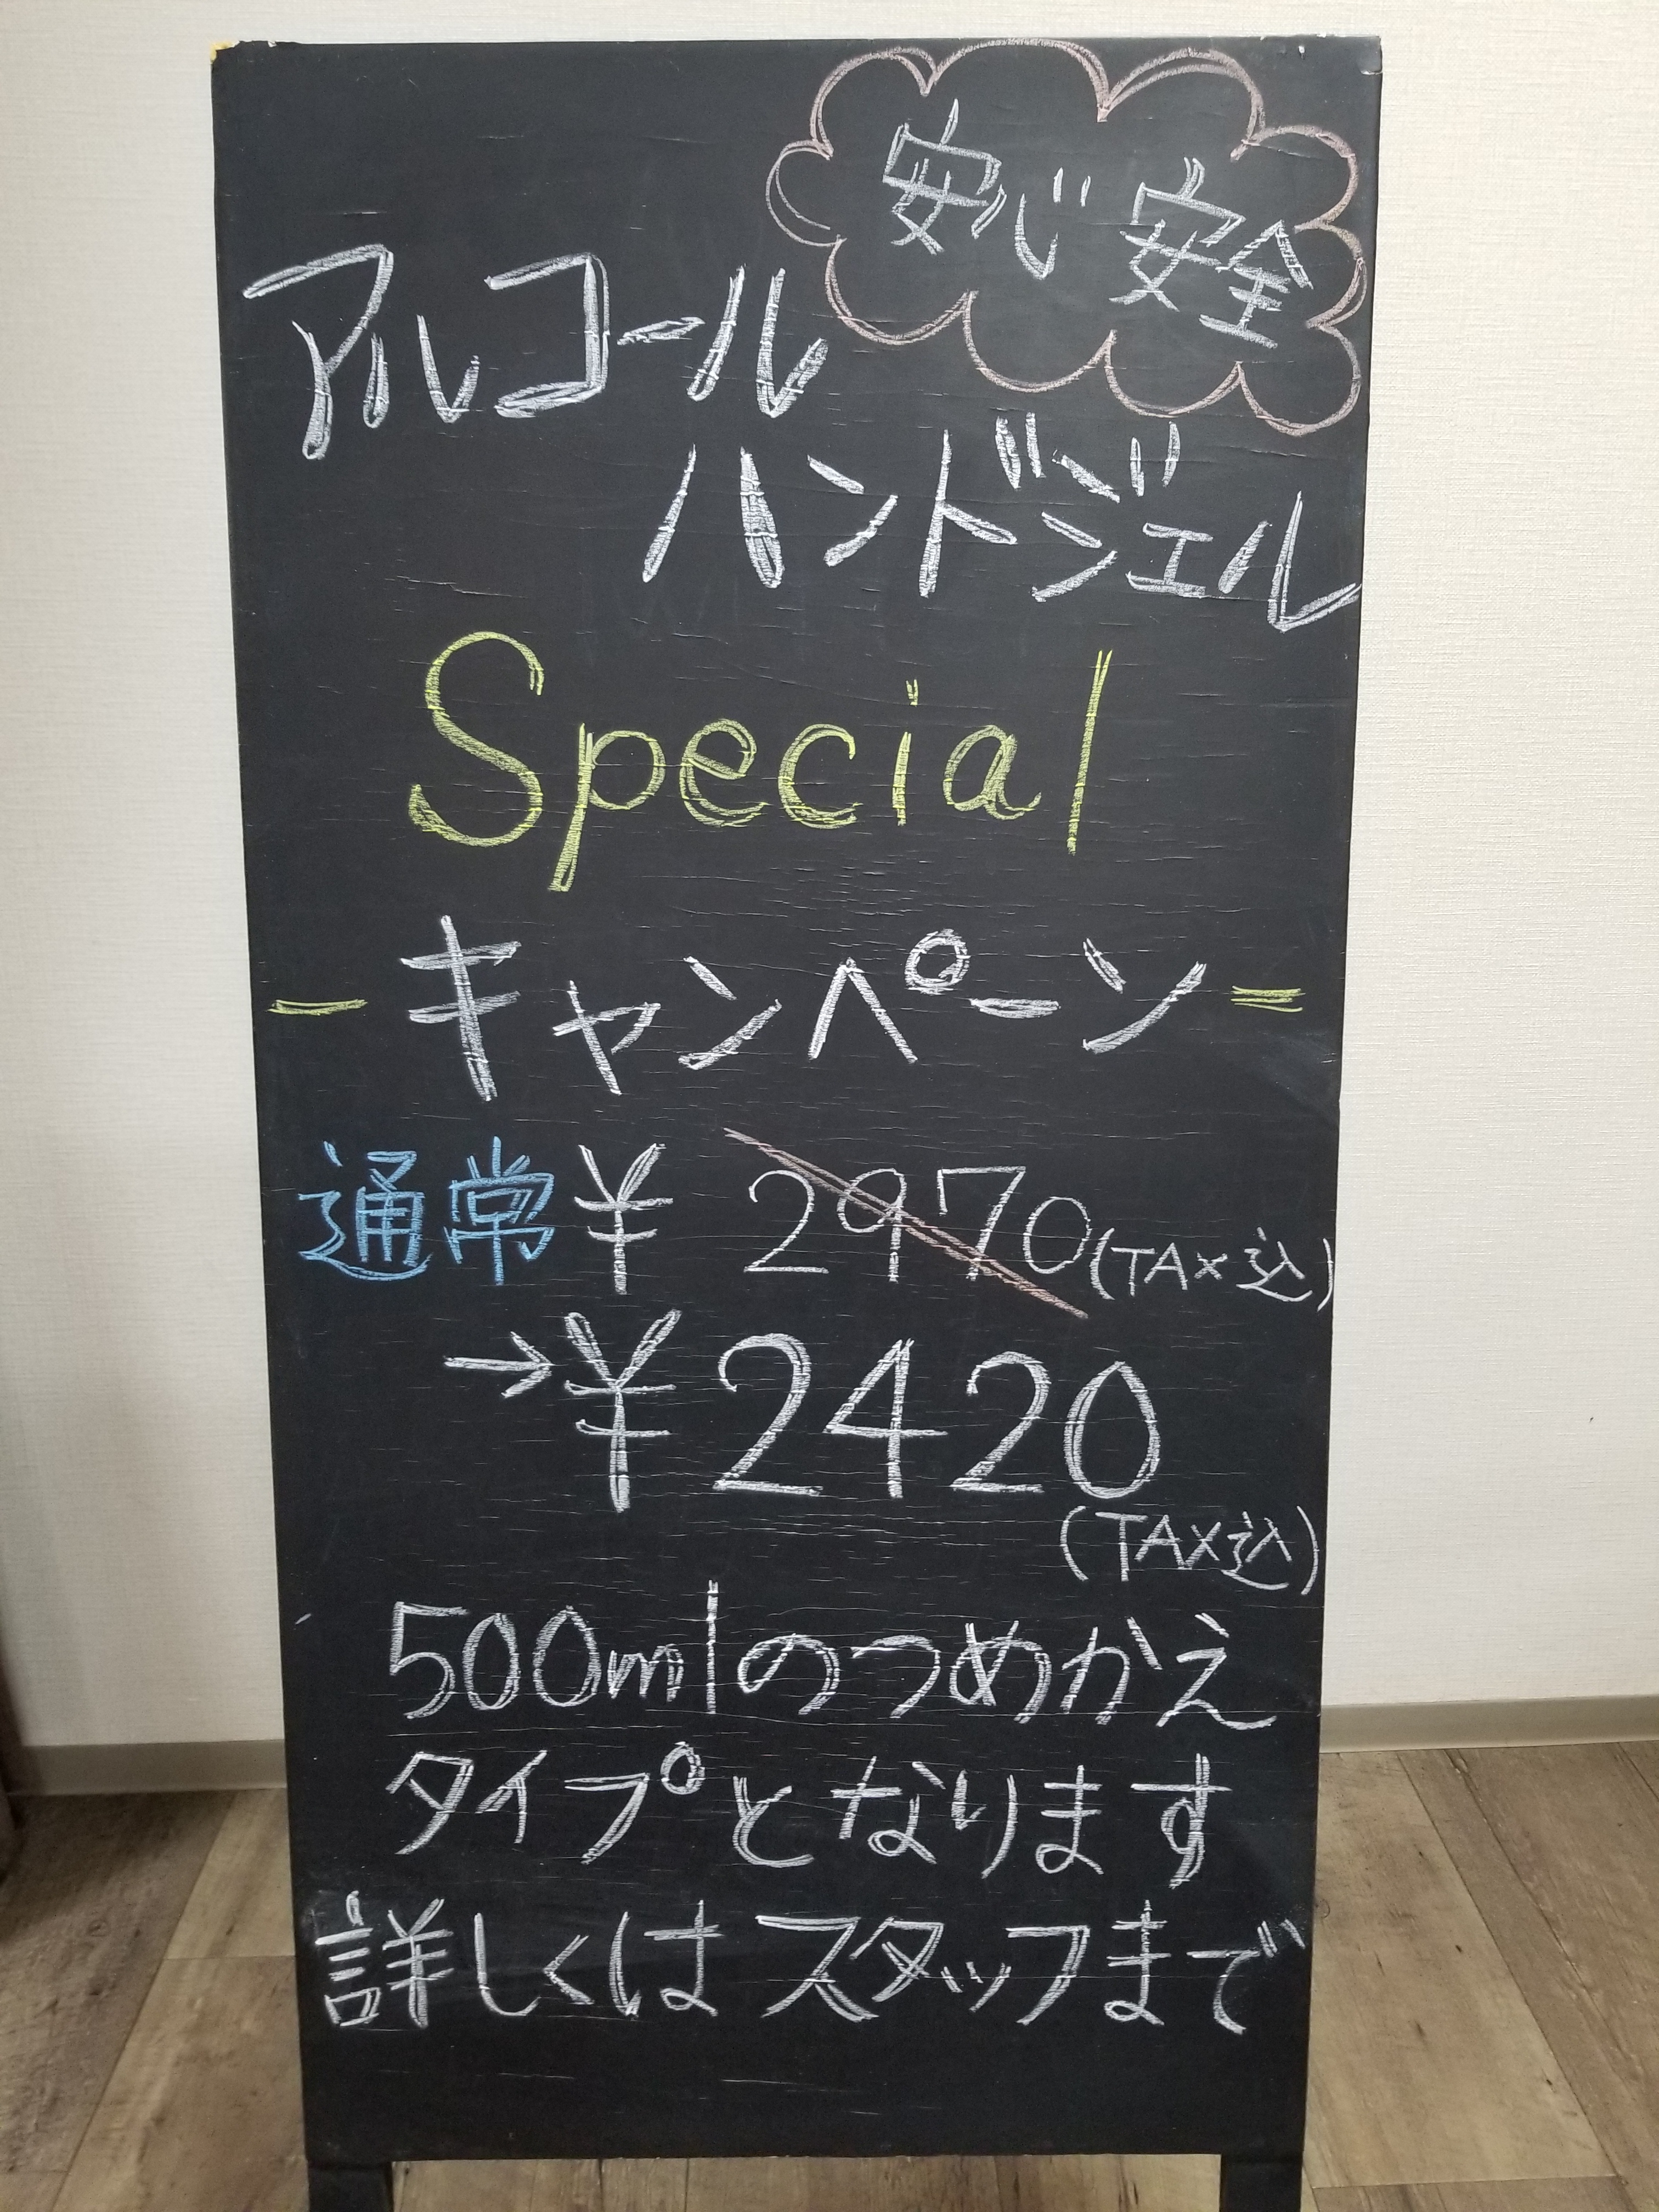 安心 安全
アルコール
ハンドジェル
Special
－キャンペーン＝
通常￥2970(TAX込)
→￥2420
(TAX込)
500mlのつめかえ
タイプとなります
詳しくはスタッフまで